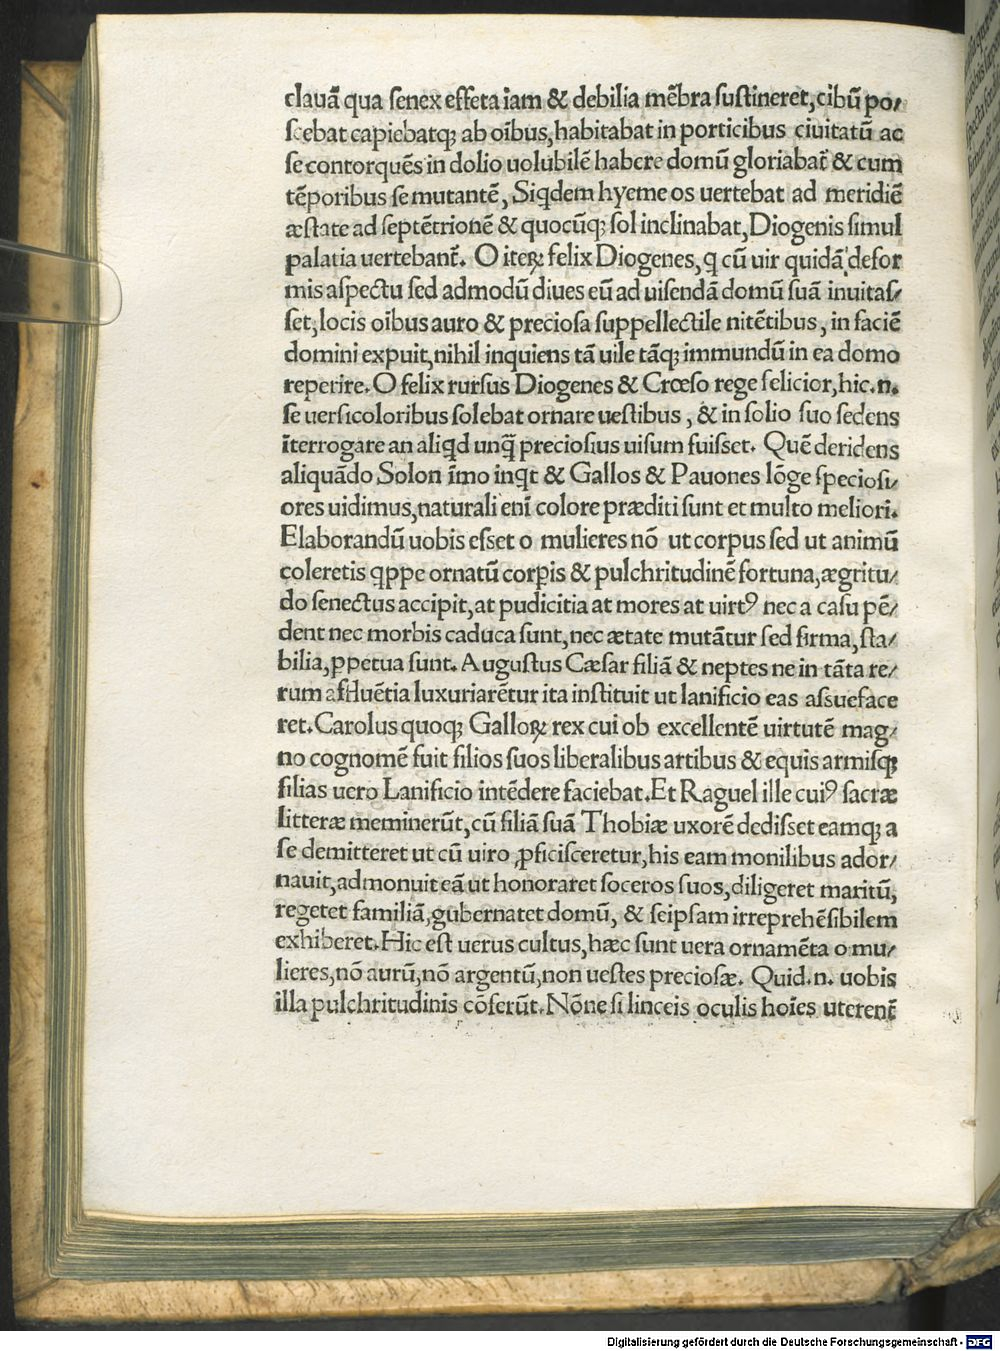 clauā qua ſenex effeta iam & debilia mēbra ſuſtineret, cibū po⸗
ſcebat capiebatq; ab oībus, habitabat in porticibus ciuitatū ac
ſe contorquēs in dolio uolubilē habere domū gloriabat̄ & cum
tēporibus ſe mutantē, Siqdem hyeme os uertebat ad meridiē
æſtate ad ſeptētrionē & quocūq; ſol inclinabat, Diogenis ſimul
palatia uertebant̄. O iteꝝ felix Diogenes, q cū uir quidā defor
mis aſpectu ſed admodū diues eū ad uiſendā domū ſuā inuitaſ⸗
ſet, locis oībus auro & precioſa ſuppellectile nitētibus, in faciē
domini expuit, nihil inquiens tā uile tāq; immundū in ea domo
reperire. O felix rurſus Diogenes & Crœſo rege felicior, hic .n.
ſe uerſicoloribus ſolebat ornare ueſtibus, & in ſolio ſuo ſedens
īterrogare an aliqd unq̄ precioſius uiſum fuiſſet. Quē deridens
aliquādo Solon īmo inqt & Gallos & Pauones lōge ſpecioſi⸗
ores uidimus, naturali enī colore præditi ſunt et multo meliori.
Elaborandū uobis eſſet o mulieres nō ut corpus ſed ut animū
coleretis qppe ornatū corꝑis & pulchritudinē fortuna, ægritu⸗
do ſenectus accipit, at pudicitia at mores at uirtꝰ nec a caſu pē⸗
dent nec morbis caduca ſunt, nec ætate mutātur ſed firma, ſta⸗
bilia, ꝑpetua ſunt. Auguſtus Cæſar filiā & neptes ne in tāta re⸗
rum affluētia luxuriarētur ita inſtituit ut lanificio eas aſſueface
ret. Carolus quoq; Galloꝝ rex cui ob excellentē uirtutē mag⸗
no cognomē fuit filios ſuos liberalibus artibus & equis armiſq;
filias uero Lanificio intēdere faciebat. Et Raguel ille cuiꝰ ſacræ
litteræ meminerūt, cū filiā ſuā Thobiæ uxorē dediſſet eamq; a
ſe demitteret ut cū uiro ꝓficiſceretur, his eam monilibus ador⸗
nauit, admonuit eā ut honoraret ſoceros ſuos, diligeret maritū,
regetet familiā, gubernatet domū, & ſeipſam irreprehēſibilem
exhiberet. Hic eſt uerus cultus, hæc ſunt uera ornamēta o mu⸗
lieres, nō aurū, nō argentū, non ueſtes precioſæ. Quid .n. uobis
illa pulchritudinis cōferūt. Nōne ſi linceis oculis hoīes uterent̄
Digitalisierung gefördert durch die Deutsche Forschungsgemeinschaft - DFG